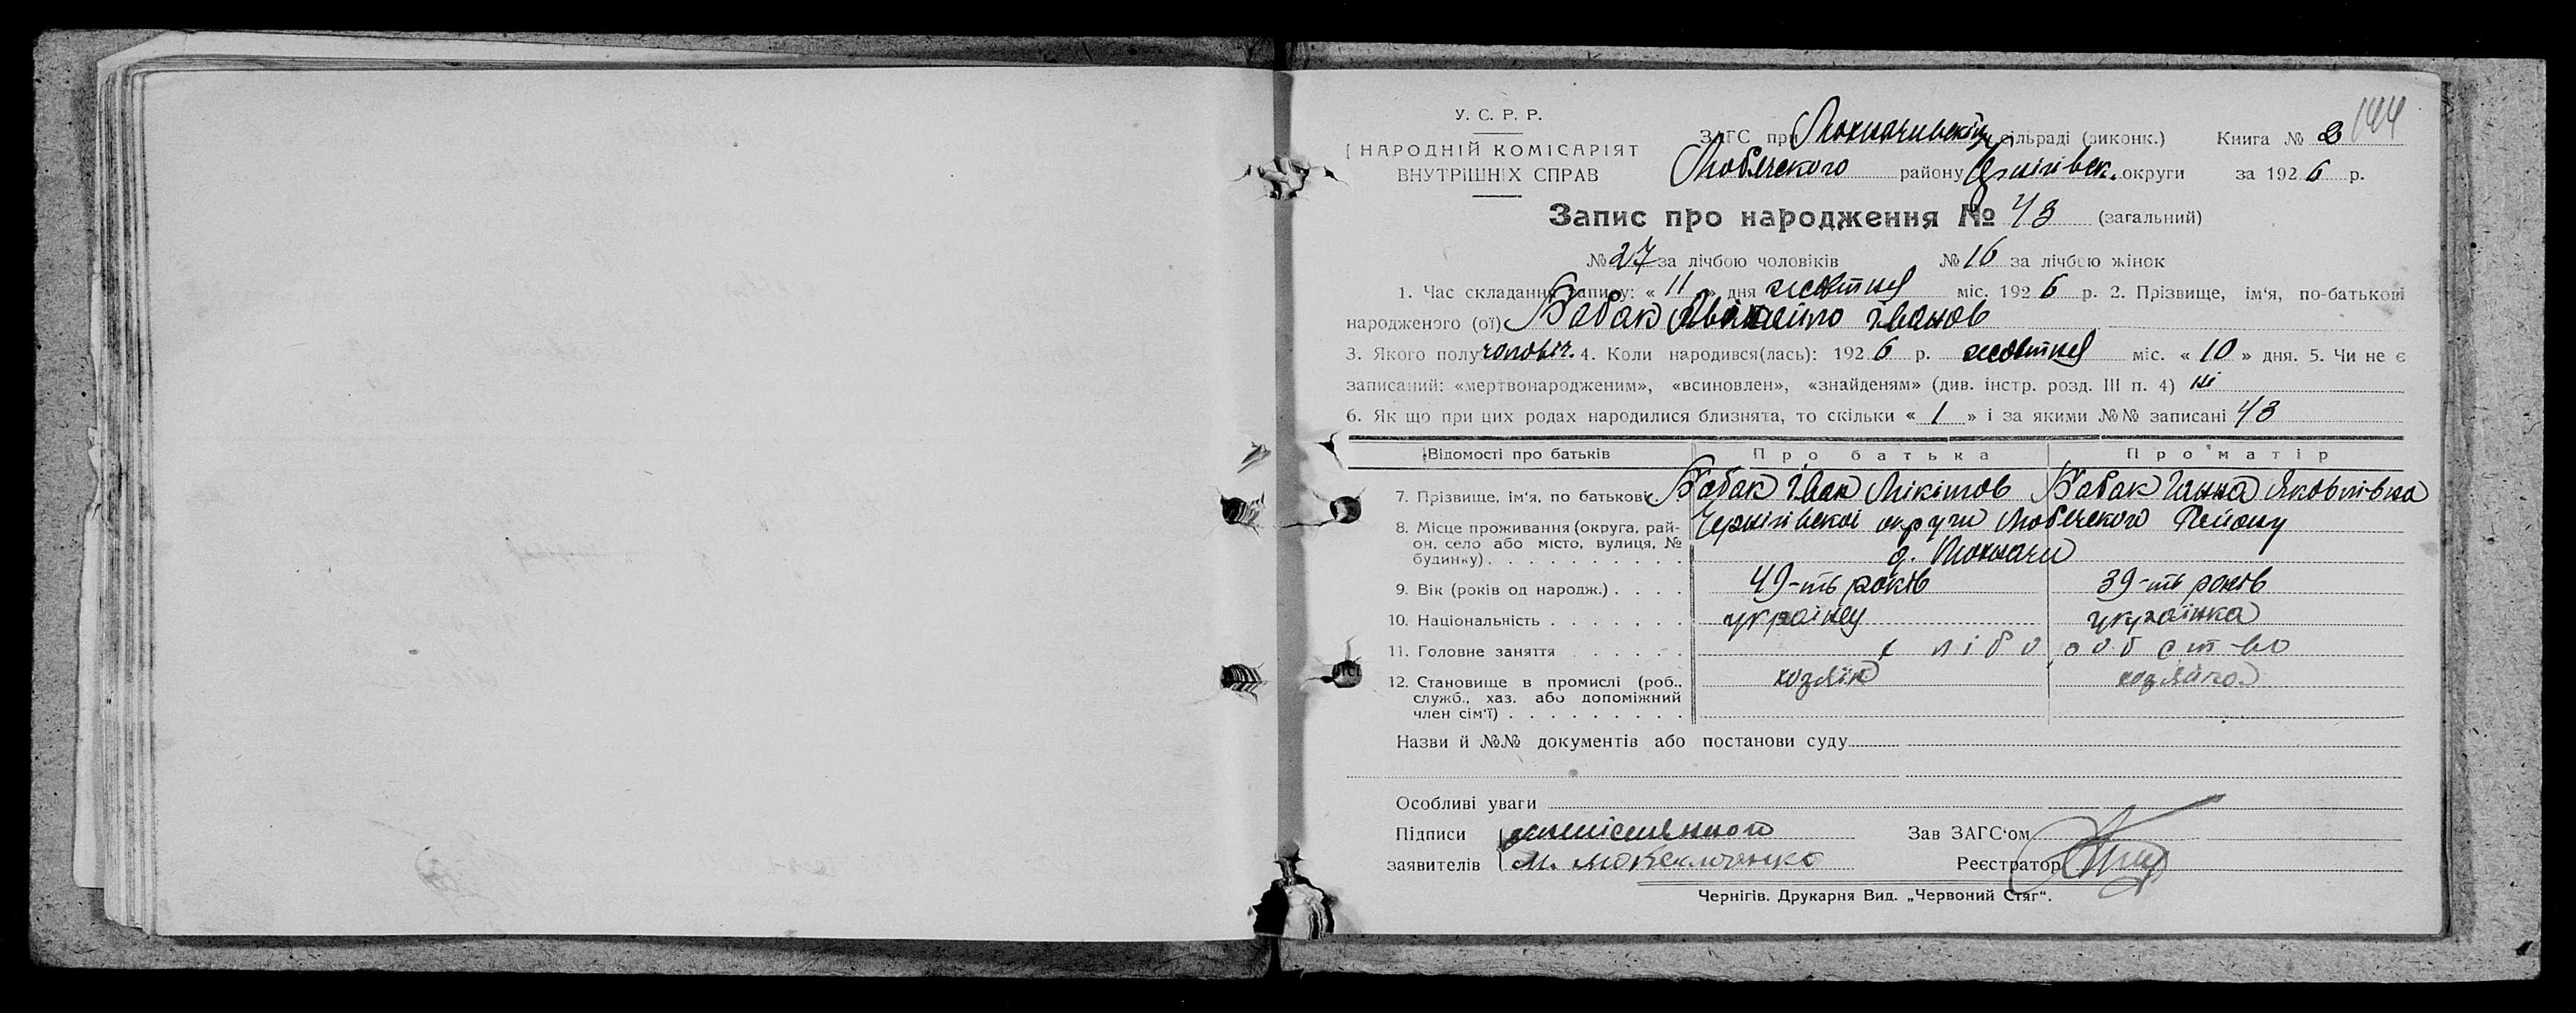 144
У. С. Р. Р.
НАРОДНІЙ КОМІСАРІЯТ
ВНУТРІШНІХ СПРАВ
ЗАГС при сільраді (виконк.) Книга № 2
Любечского району Чернігівск. округи за 1926 р.
Запис про народження № 43 (загальний)
№ 27 за лічбою чоловіків № 16 за лічбою жінок
1. Час складання запису: « 11 » дня жовтня міс. 1926 р. 2. Прізвище, ім'я, по-батькові
народженого (ої) Бабак Іванов
3. Якого полу чоловіч. 4. Коли народився(лась): 1926 р. жовтня міс. « 10 » дня. 5. Чи не є
записаний: «мертвонародженим», «всиновлен», «знайденям» (див. інстр. розд. III п. 4) ні
6. Як що при цих родах народилися близнята, то скільки « 1 » і за якими №№ записані 43
Відомості про батьків Про батька Про матір
7. Прізвище, ім'я, по батькові. Бабак Іван Мікітов Бабак Ганна Яковлівна
8. Місце проживання (округа, рай-
он, село або місто, вулиця, №
будинку) . . . . . . . . . .
Чернігівскоі округи Любечского Району
9. Вік (років од народж.) . . . . 49-ть років 39-ть років
10. Національність . . . . . . . українец українка
11. Головне заняття . . . . . . хліборобство
12. Становище в промислі (роб.,
служб., хаз. або допоміжний
член сім'ї) . . . . . . . . .
хозяін хозяйка
Назви й №№ документів або постанови суду
Особливі уваги
Підписи Зав ЗАГС'ом
заявителів М. Реєстратор
Чернігів. Друкарня Вид. „Червоний Стяг".